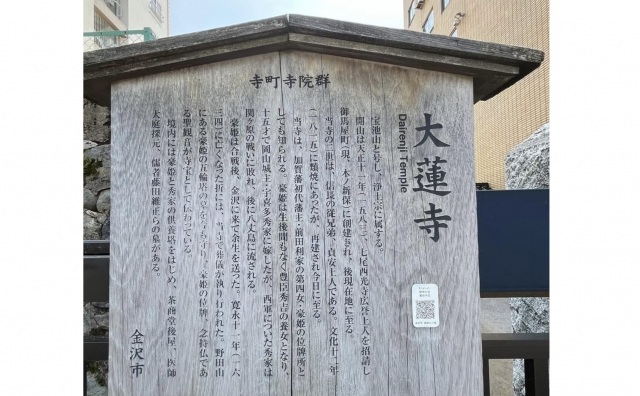 寺町寺院群
大蓮寺
Dairenji Temple
宝池山と号し、浄土宗に属する。
開山は天正十一年(一五八三)、七尾西光寺広誉上人を招請し
御馬屋町(現、本ノ新保)に創建され、後現在地に至る。
当寺の二世は、信長の従兄弟、貞安上人である。文化十二年
(一八一五)に類焼にあったが、再建され今日に至る。
当寺は、加賀藩初代藩主・前田利家の第四女・豪姫の位牌所と
しても知られる。豪姫は生後間もなく豊臣秀吉の養女となり、
十五才で岡山城主・宇喜多秀家に嫁したが、西軍についた秀家は
関ヶ原の戦いに敗れ、後に八丈島に流される。
豪姫は合戦後、金沢に来て余生を送った。寛永十一年(一六
三四)に亡くなった折には、当寺で葬儀が執り行われた。野田山
にある豪姫の五輪塔の立を守り、豪姫の位牌、念持仏であ
る聖観音が寺宝として伝わっている。
境内には豪姫と秀家の供養塔をはじめ、茶商堂後屋、医師
大庭探元、儒者藤田維正らの墓がある。
金沢市